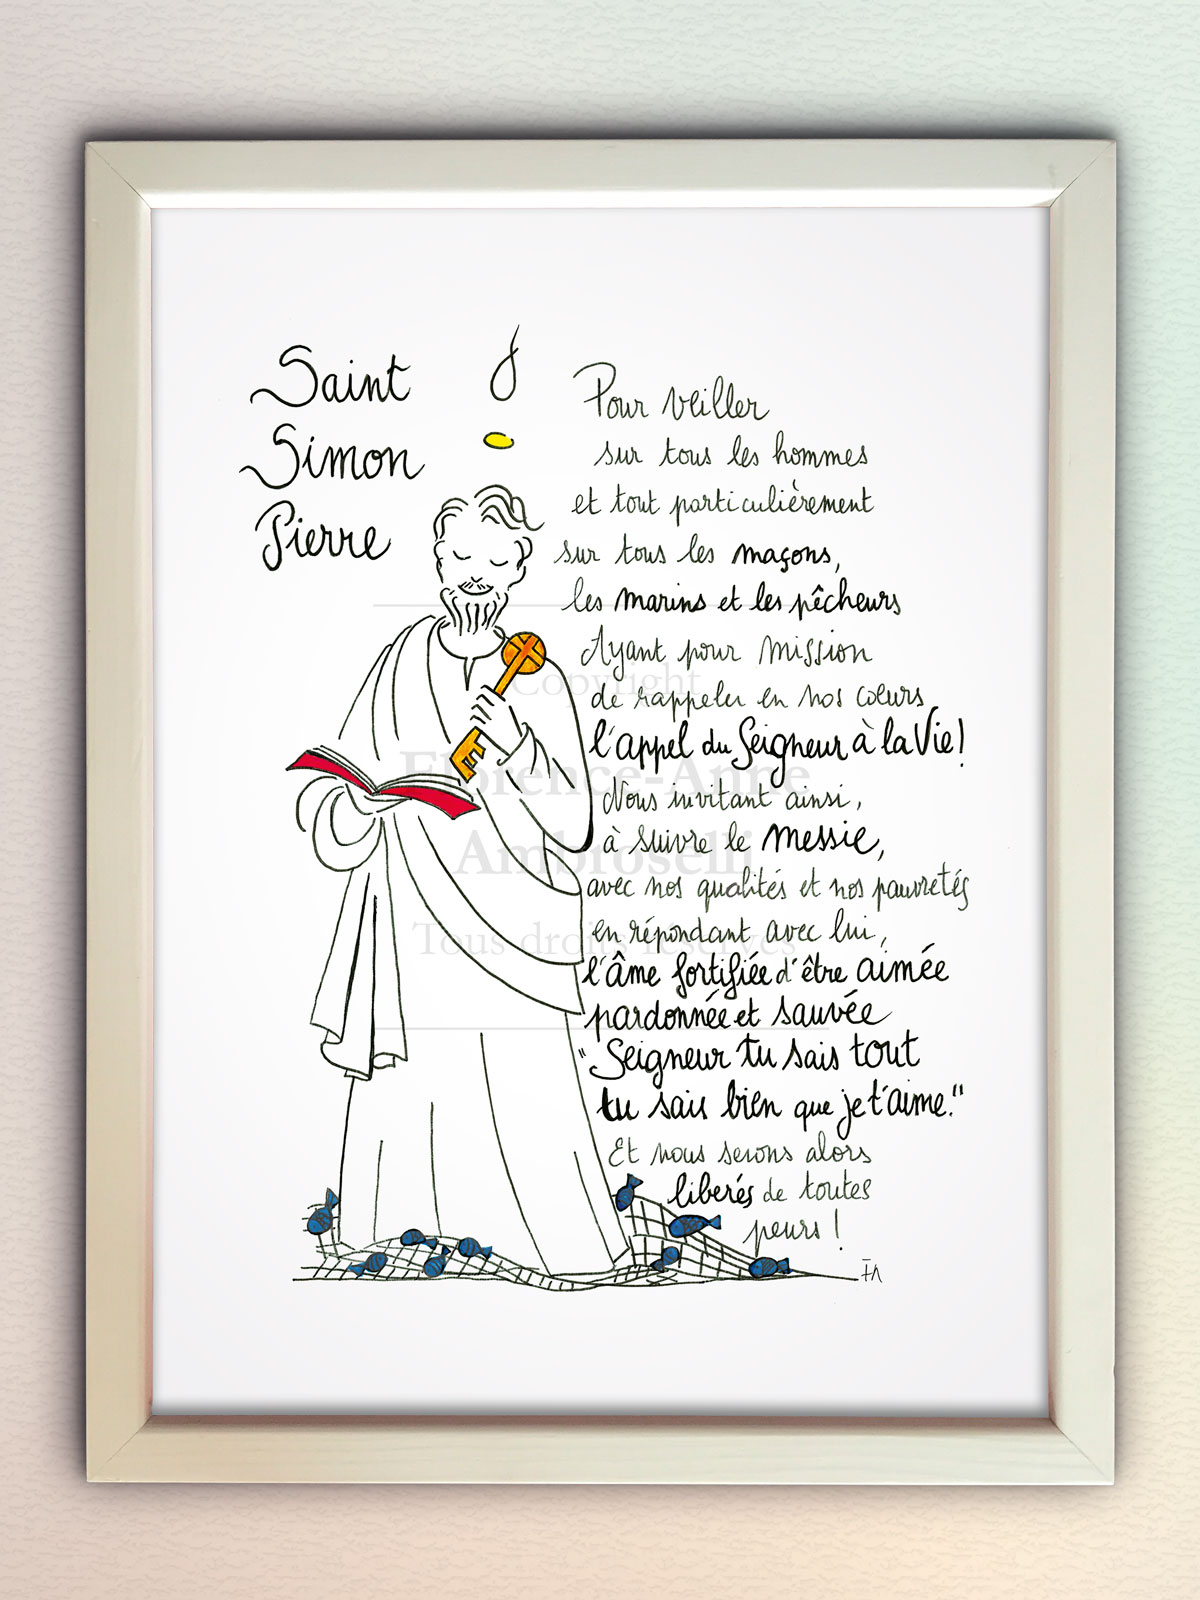 Saint
Simon
Pierre
Pour veiller
sur tous les hommes
et tout particulièrement
sur tous les maçons,
les marins et les pêcheurs
Ayant pour mission
de rappeler en nos cœurs
l'appel du Seigneur à la Vie!
Nous invitant ainsi,
à suivre le messie,
avec nos qualités et nos pauvretés
en répondant avec lui,
l'âme fortifiée d'être aimée
pardonnée et sauvée
"Seigneur tu sais tout
tu sais bien que je t'aime."
Et nous serons alors
libérés de toutes
peurs !
FA
Copyright
Florence-Anne
Ambroselli
Tous droits réservés